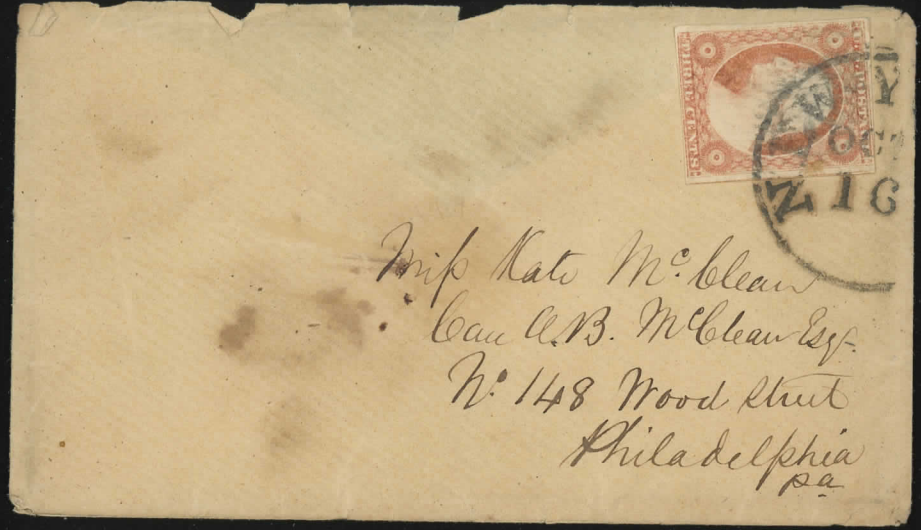 U.S. POSTAGE
THREE CENTS
NEW Y
OCT
16
Miss Kate McClean
Care A.B. McClean Esqr.
No. 148 Wood Street
Philadelphia
pa